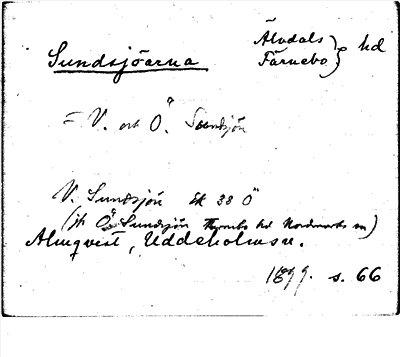 Sundsjöarna
Älvdals } hd
Färnebo
= V. och Ö. Sundsjön
V. Sundsjön Ek 38 Ö
(jfr Ö. Sundsjön Färnebo hd Nordmarks sn)
Almqvist, Uddeholmsv.
1899. s. 66